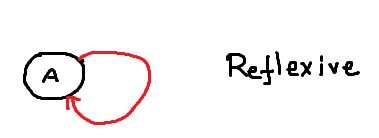 A
Reflexive